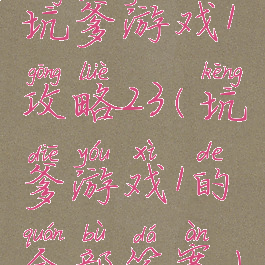 坑爹游戏1
gōng lüè kēng
攻略23(坑
diē yóu xì de
爹游戏1的
quán bù dá àn
全部答案)